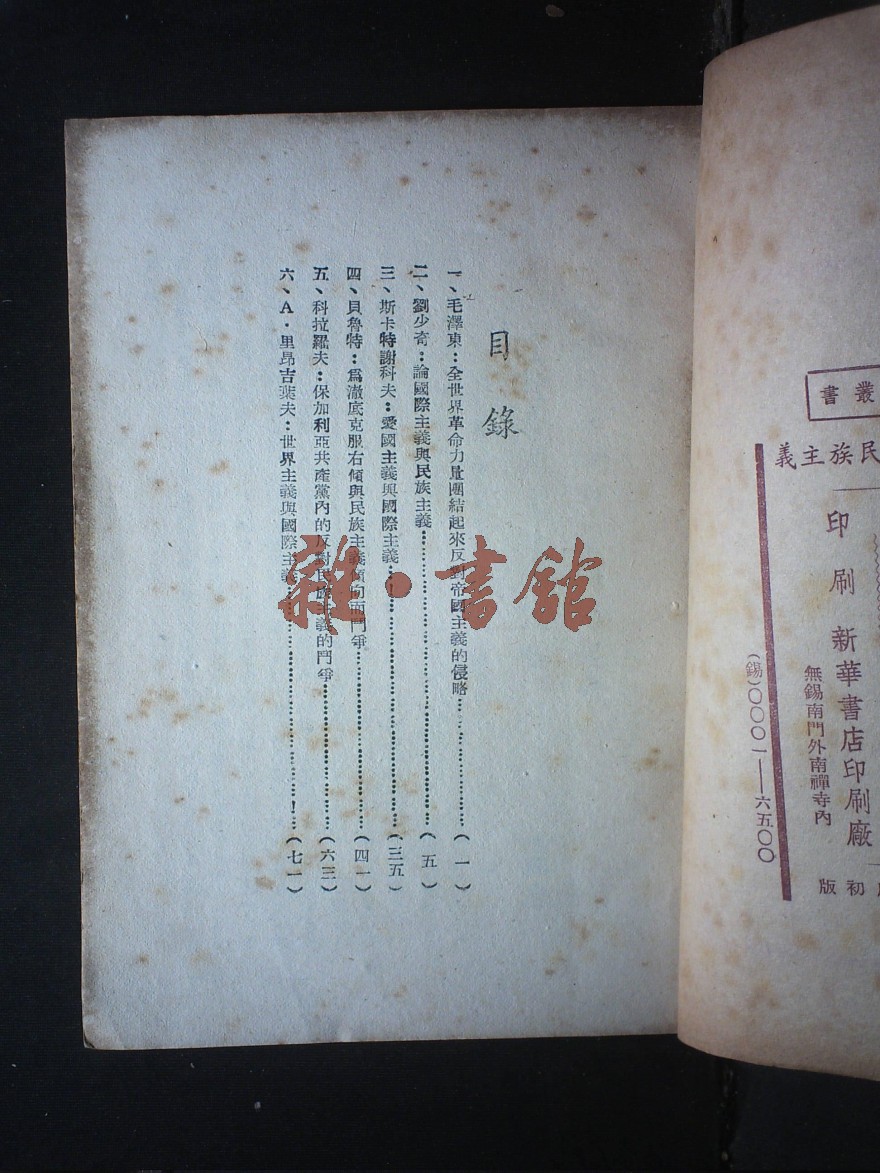 叢書
民族主義
印刷 新華書店印刷廠
無錫南門外南禪寺內
初版
(錫)〇〇〇一——六五〇〇
目錄
一、毛澤東：全世界革命力量團結起來反對帝國主義的侵略……………（一）
二、劉少奇：論國際主義與民族主義……………（五）
三、斯卡特謝科夫：愛國主義與國際主義……………（三五）
四、貝魯特：爲澈底克服右傾與民族主義傾向而鬥爭……………（四一）
五、科拉羅夫：保加利亞共產黨內的反對民族主義的鬥爭……………（六三）
六、A·里昂吉葉夫：世界主義與國際主義……………（七一）
雜·書館